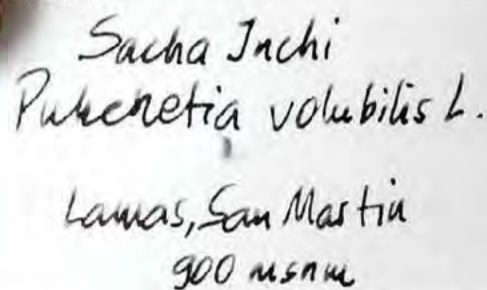 Sacha Inchi
Pukenetia volubilis L.
Lamas, San Martin
900 msnm